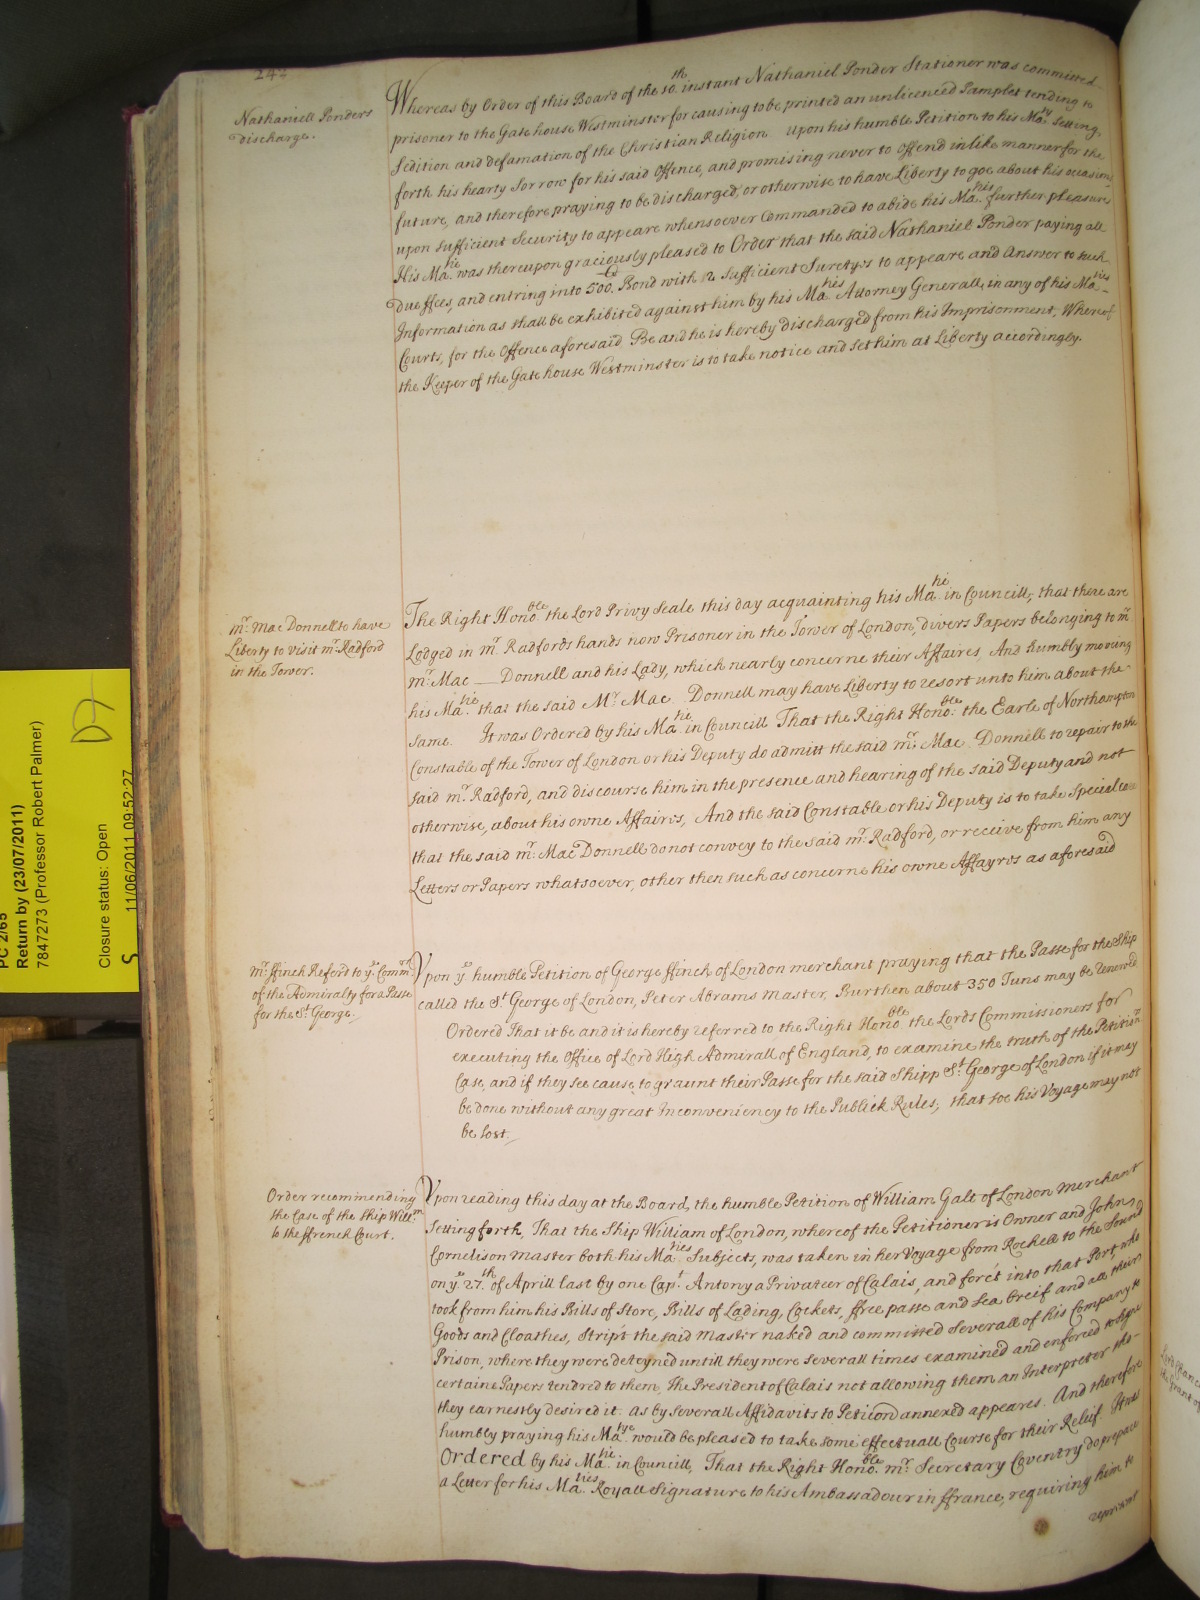 242
Nathaniell Ponders
discharge.
Whereas by Order of this Board of the 10.th instant Nathaniel Ponder Stationer was committed
prisoner to the Gatehouse Westminster for causing to be printed an unlicenced Pamplet tending to
Sedition and defamation of the Christian Religion Upon his humble Petition to his Ma.ty Setting
forth his hearty Sorrow for his said Offence, and promising never to Offend in like manner for the
future, and therefore praying to be discharged, or otherwise to have Liberty to goe about his occasions
upon sufficient Security to appeare whensoever Commanded to abide his Ma.ties further pleasure
His Ma.tie was thereupon graciously pleased to Order that the said Nathaniel Ponder paying all
due ffees, and entring into 500.li Bond with 2 Sufficient Suretyes to appeare and Answer to such
Information as shall be exhibited against him by his Ma.ties Attorney Generall, in any of his Ma.ties
Courts, for the Offence aforesaid Be and he is hereby discharged from his Imprisonment, Whereof
the Keeper of the Gatehouse Westminster is to take notice and set him at Liberty accordingly.
m.r Mac Donnell to have
Liberty to visit m.r Radford
in the Tower.
The Right Hono.ble the Lord Privy Seale this day acquainting his Ma.tie in Councill, that there are
Lodged in m.r Radfords hands now Prisoner in the Tower of London, divers Papers belonging to m.r
m.r Mac Donnell and his Lady, which nearly concerne their Affaires, And humbly moving
his Ma.tie that the said M.r Mac Donnell may have Liberty to resort unto him about the
same. It was Ordered by his Ma.tie in Councill That the Right Hono.ble the Earle of Northampton
Constable of the Tower of London or his Deputy do admitt the said m.r Mac Donnell to repair to the
said m.r Radford, and discourse him in the presence and hearing of the said Deputy and not
otherwise, about his owne Affaires, And the said Constable or his Deputy is to take Special care
that the said m.r Mac Donnell do not convey to the said m.r Radford, or receive from him any
Letters or Papers whatsoever, other then such as concerne his owne Affayres as aforesaid
m.r ffinch Referd to y.e Comm.rs
of the Admiralty for a Passe
for the S.t George.
Vpon y.e humble Petition of George ffinch of London merchant praying that the Passe for the Ship
called the S.t George of London, Peter Abrams Master, Burthen about 350 Tuns may be renewed
Ordered That it be and it is hereby referred to the Right Hono.ble the Lords Commissioners for
executing the Office of Lord High Admirall of England, to examine the truth of the Petition.rs
Case, and if they see cause to graunt their Passe for the said Shipp S.t George of London if it may
be done without any great Inconveniency to the Publick Rules, that soe his Voyage may not
be lost.
Order recommending
the Case of the Ship Will.m
to the ffrench Court.
Vpon reading this day at the Board, the humble Petition of William Galt of London Merchant
Setting forth, That the Ship William of London, whereof the Petitioner is Owner and John
Cornelison Master both his Ma.ties Subjects, was taken in her Voyage from Rochell to the Sound
on y.e 27.th of Aprill last by one Cap.t Antony a Privateer of Calais, and forc't into that Port, who
took from him his Bills of Store, Bills of Lading, Cockets, ffree passe and Sea breif and all their
Goods and Cloathes, Stript the said Master naked and committed Severall of his Company to
Prison, where they were deteyned untill they were severall times examined and enforced to signe
certaine Papers tendred to them, The President of Calais not allowing them an Interpreter tho
they earnestly desired it. as by severall Affidavits to Peticon annexed appeares. And therefore
humbly praying his Ma.tye would be pleased to take some effectuall Course for their Relief. It was
Ordered by his Ma.tie in Councill, That the Right Hono.ble m.r Secretary Coventry do prepare
a Letter for his Ma.ties Royall Signature to his Ambassadour in ffrance, requiring him to
represent
PC 2/65
Return by (23/07/2011)
7847273 (Professor Robert Palmer)
Closure status: Open
11/06/2011 09:52:27
S
D7